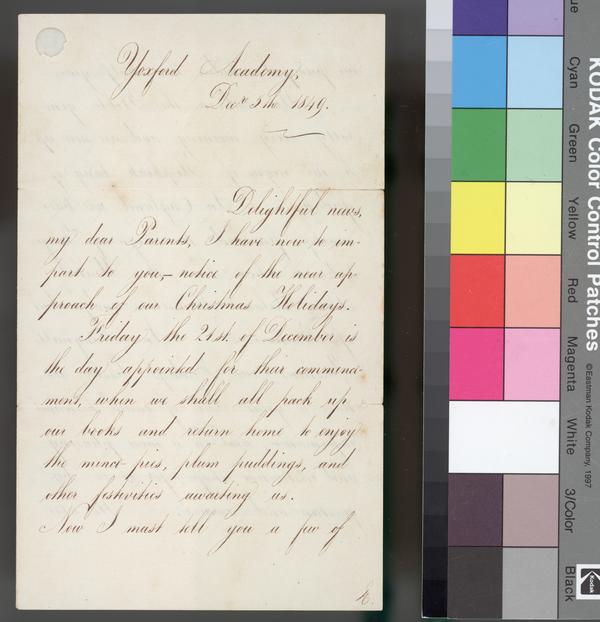 Yoxford Academy,
Decr 5th. 1849.
Delightful news,
my dear Parents, I have now to im-
part to you,– notice of the near ap-
proach of our Christmas Holidays.
Friday the 21st. of December is
the day appointed for their commence-
ment, when we shall all pack up
our books and return home to enjoy
the mince-pies, plum puddings, and
other festivities awaiting us.
Now I must tell you a few of
KODAK Color Control Patches
©Eastman Kodak Company, 1997
ue
Cyan
Green
Yellow
Red
Magenta
White
3/Color
Black
Kodak